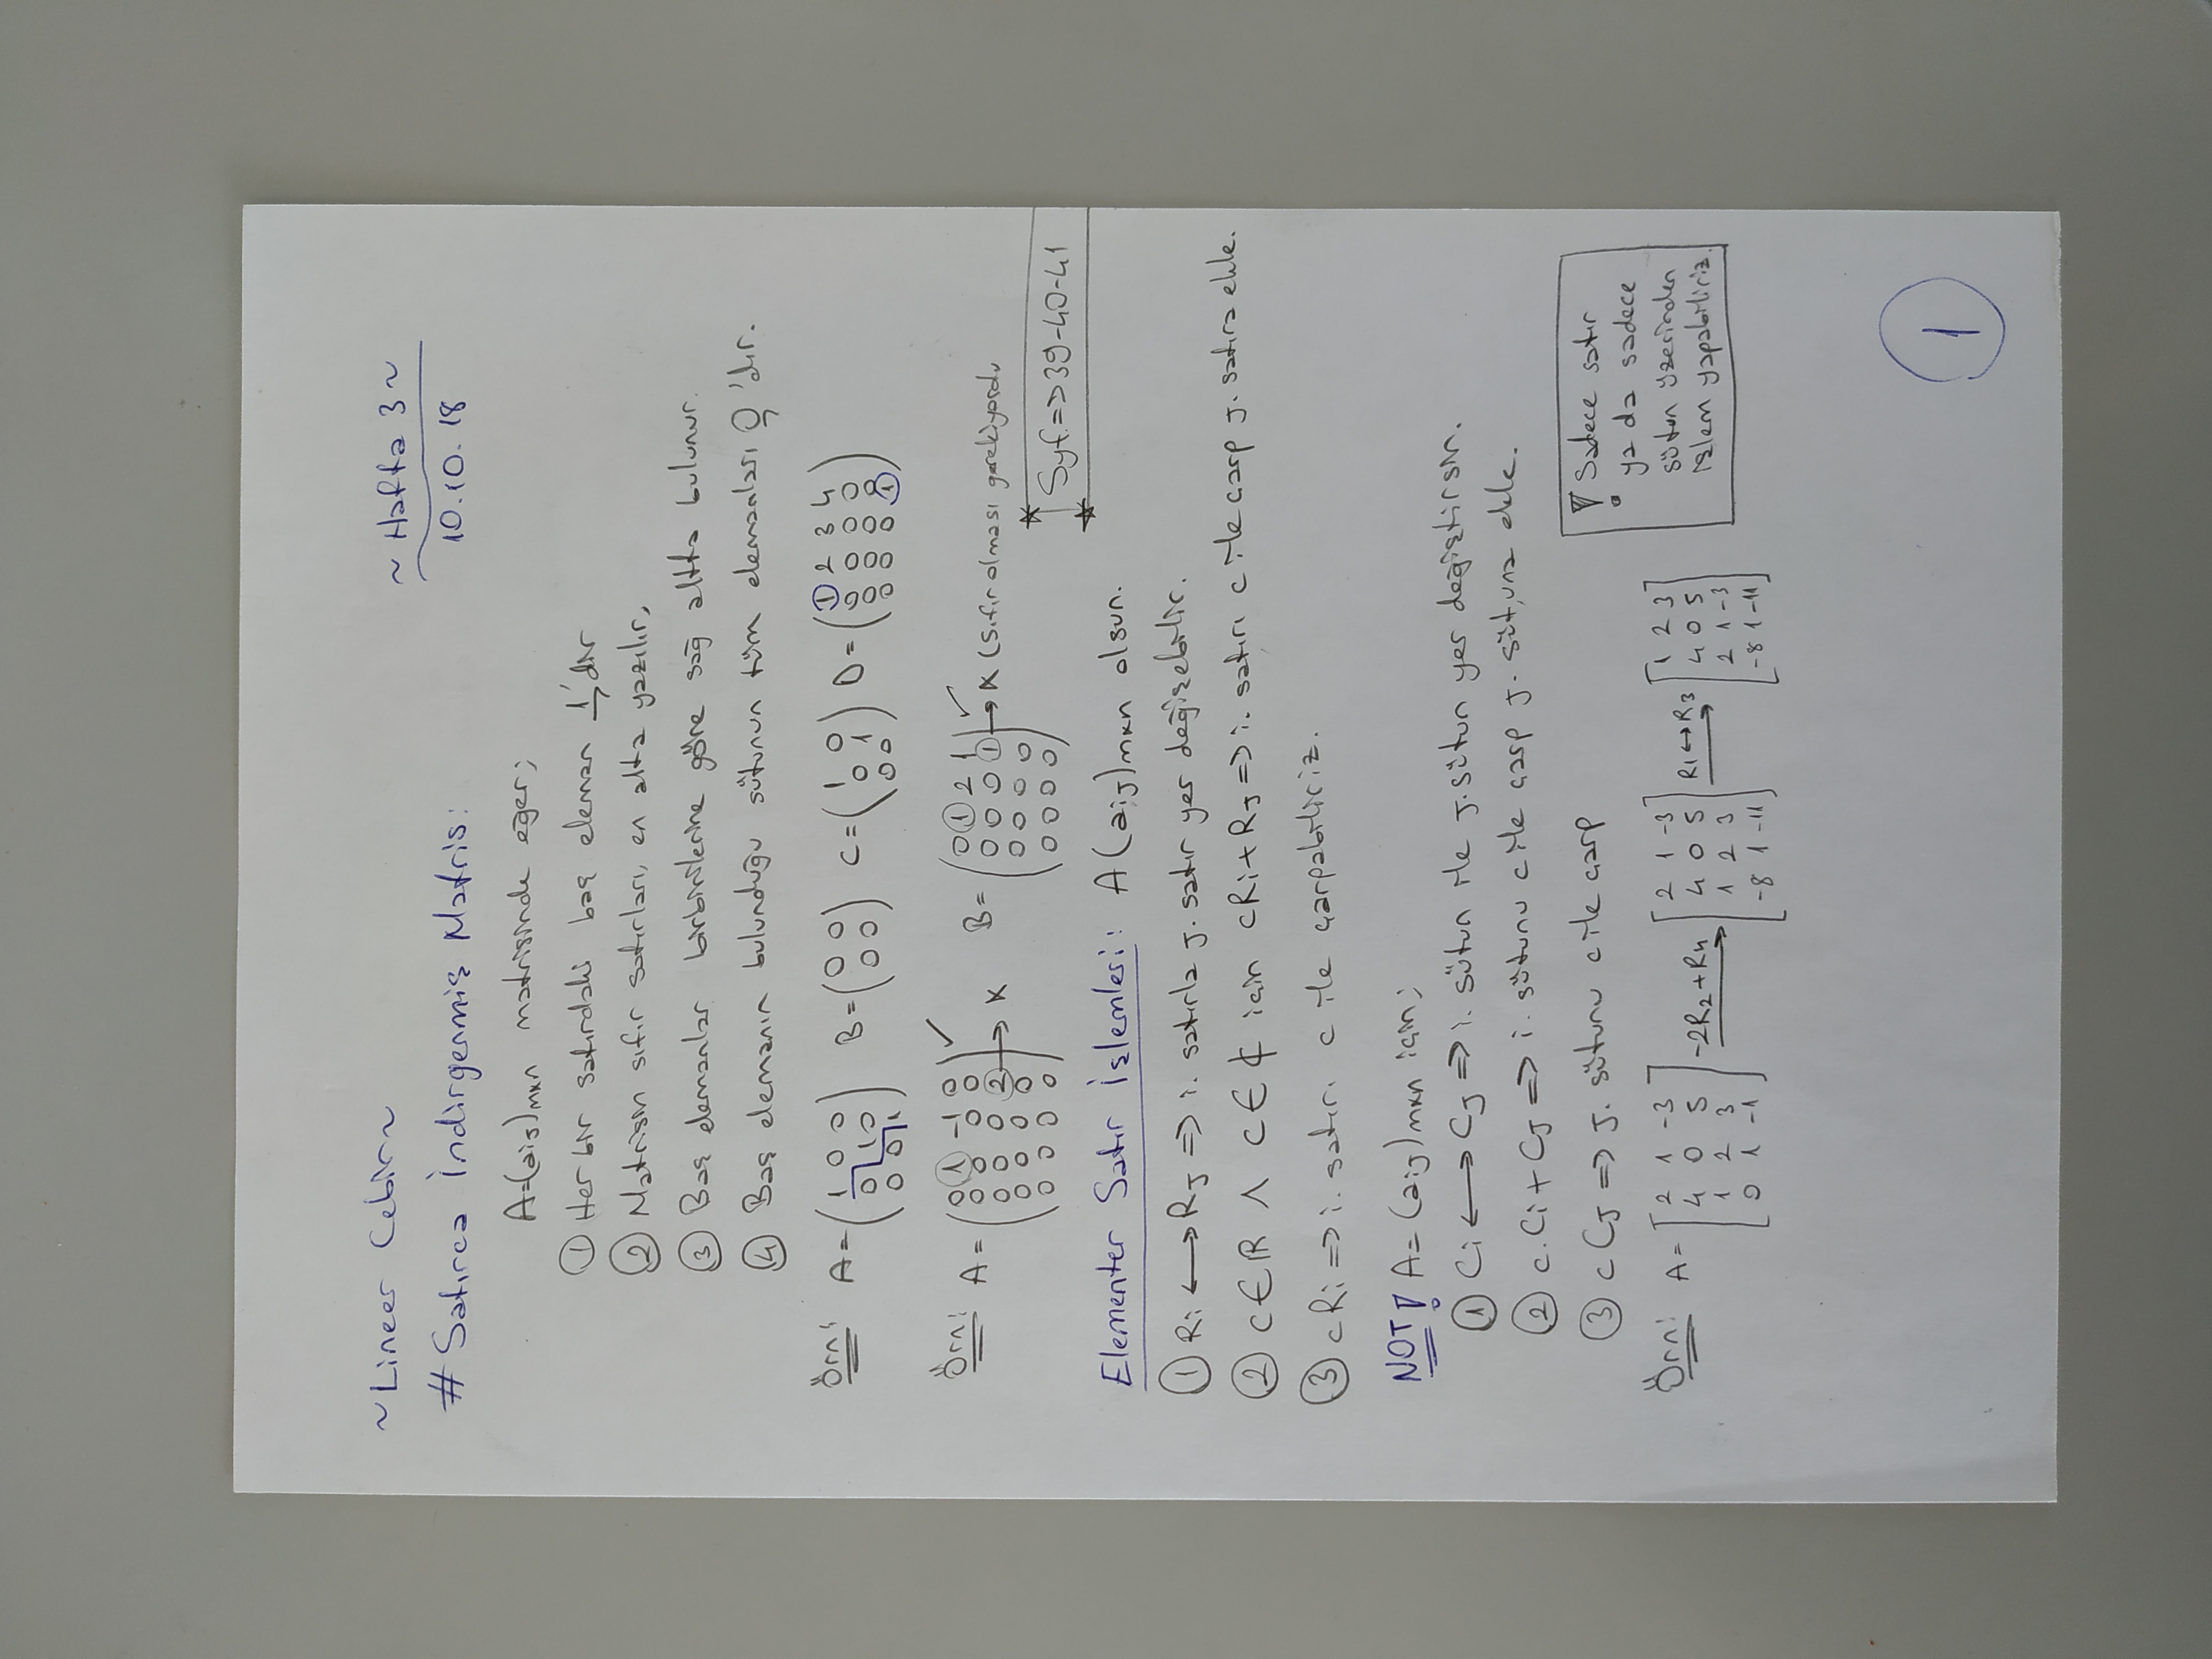 ~Lineer Cebir~
~ Hafta 3 ~
10.10.18
# Satırca İndirgenmiş Matris:
A=(aij)mxn matrisinde eğer;
① Her bir satırdaki baş eleman 1'dir
② Matrisin sıfır satırları, en alta yazılır,
③ Baş elemanlar birbirilerine göre sağ altta bulunur.
④ Baş elemanın bulunduğu sütunun tüm elemanları 0'dır.
Örn: A= B= C= D=
1 0 0
0 1 0
0 0 1
0 0
0 0
1 0
0 1
0 0
1 2 3 4
0 0 0 0
0 0 0 0
0 0 0 1
Örn: A=
0 1 -1 0 ✓
0 0 0 0
0 0 0 2 → X
0 0 0 0
0 0 0 0
B=
0 1 2 1 ✓
0 0 0 1 → X (Sıfır olması gerekiyordu
0 0 0 0
0 0 0 0
Syf.=>39-40-41
Elementer Satır İşlemleri: A(aij)mxn olsun.
① Ri ↔ Rj => i. satırla j. satır yer değişebilir.
② c∈R ∧ c∈₵ için cRi+Rj => i. satırı c ile çarp j. satıra ekle.
③ cRi => i. satırı c ile çarpabiliriz.
NOT! A=(aij)mxn için;
① Ci ↔ Cj => i. sütun ile j. sütun yer değiştirsin.
② c.Ci+Cj => i. sütunu c ile çarp j. sütuna ekle.
③ cCj => j. sütunu c ile çarp
! Sadece satır
ya da sadece
sütun üzerinden
işlem yapabiliriz.
Örn: A=
2 1 -3
4 0 5
1 2 3
0 1 -1
-2R2+R4
2 1 -3
4 0 5
1 2 3
-8 1 -11
R1↔R3
1 2 3
4 0 5
2 1 -3
-8 1 -11
1